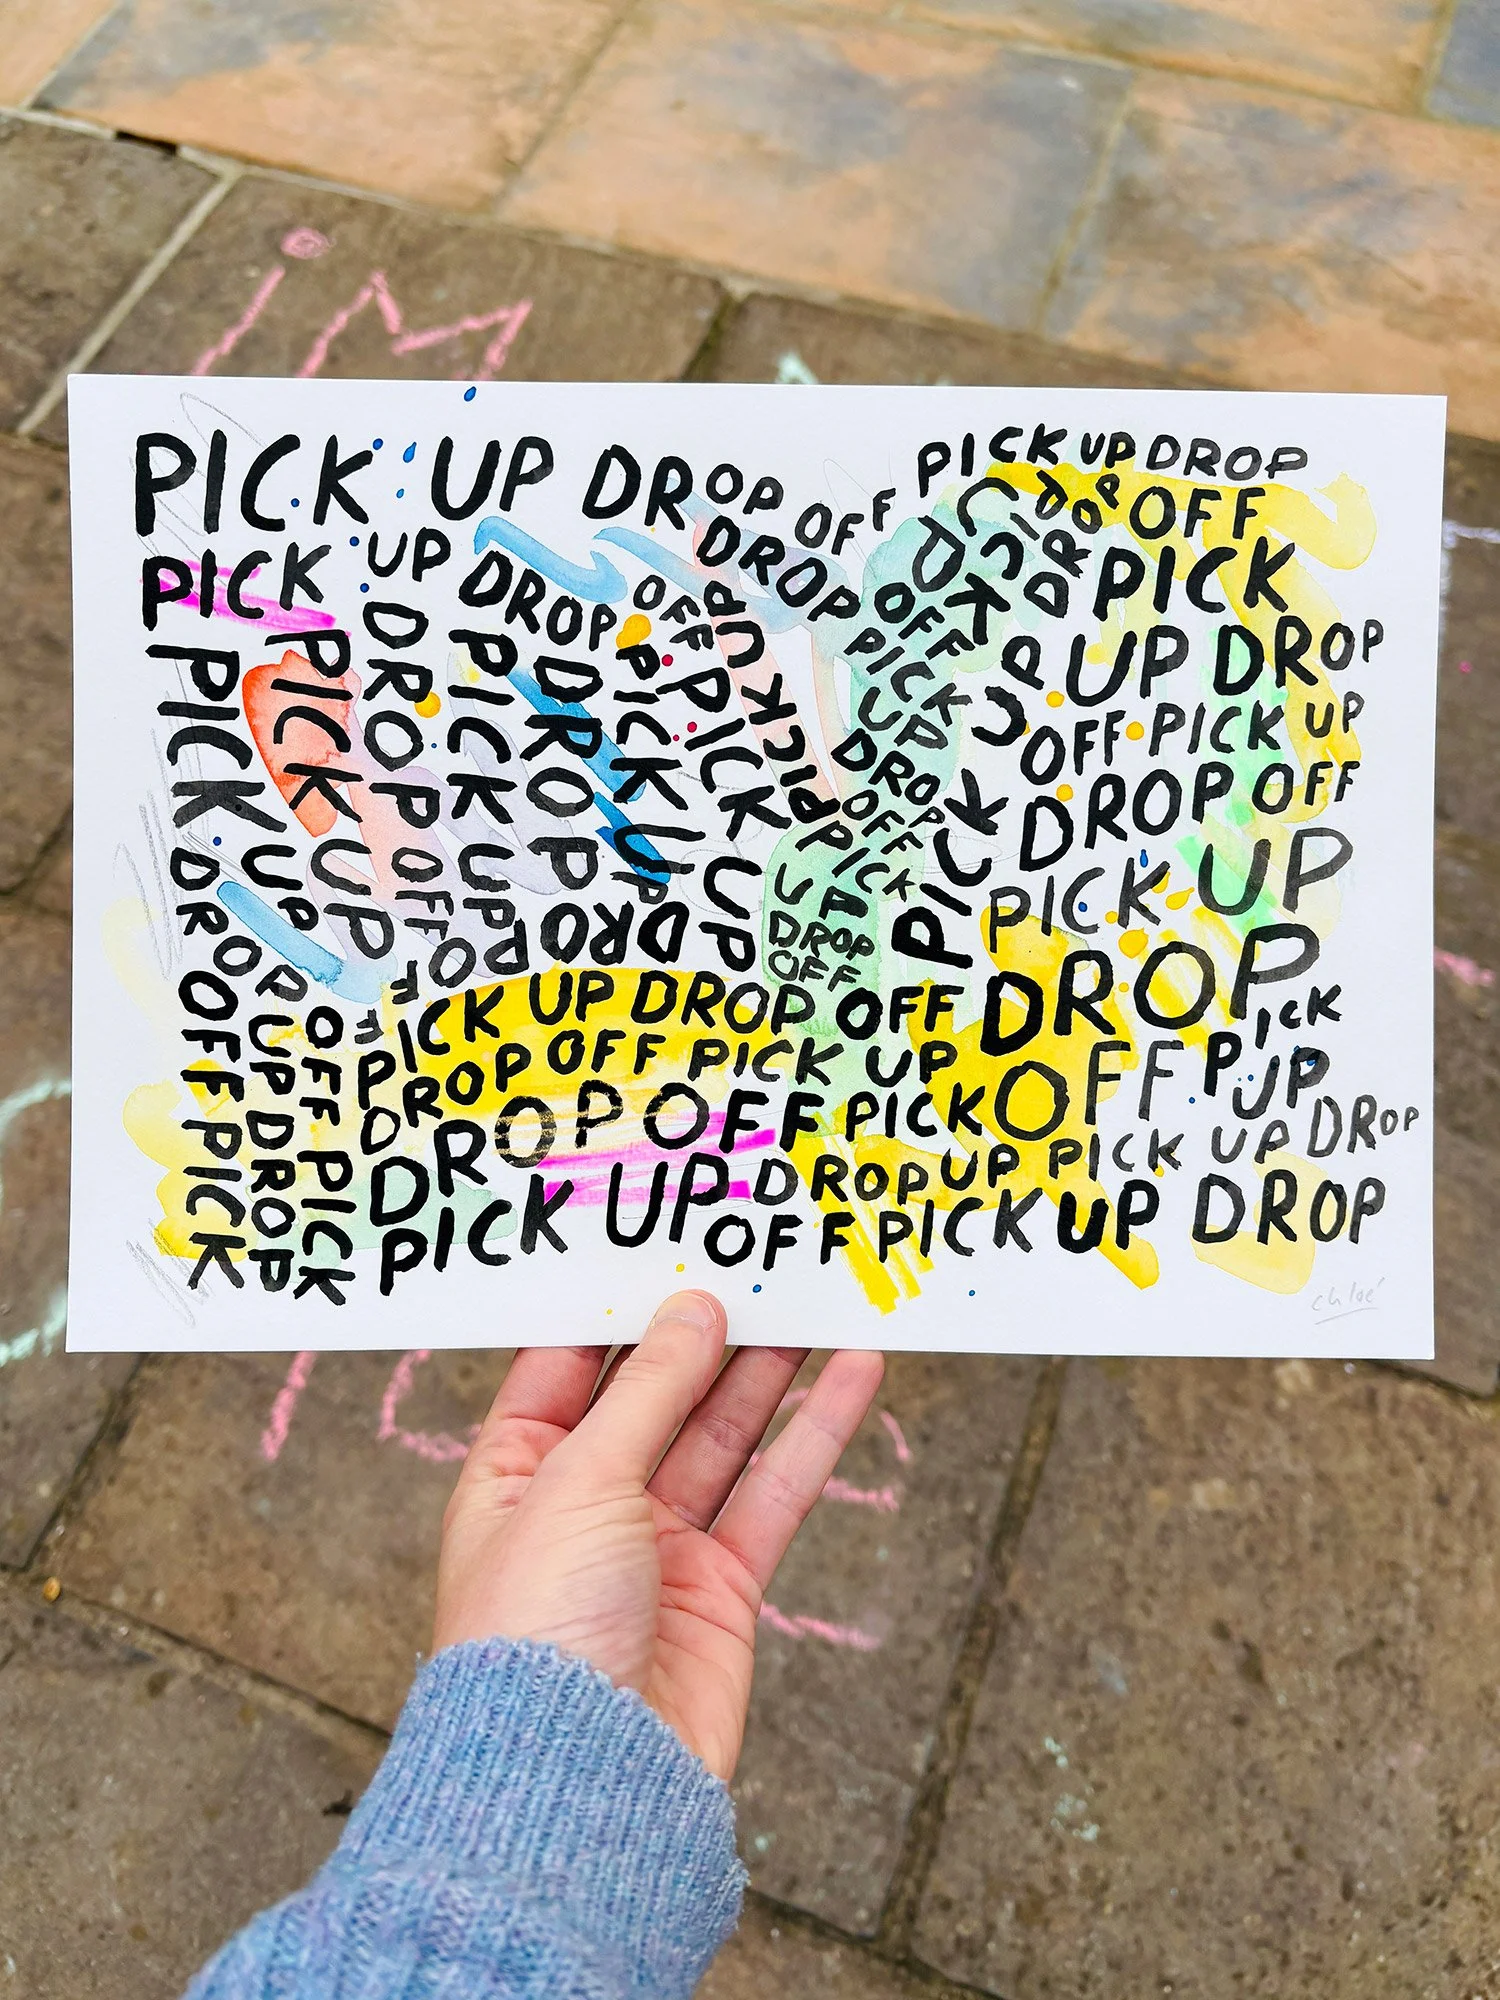 iM
PICK UP DROP OFF
PICK UP DROP OFF
PICK UP DROP OFF PICK
PICK UP DROP OFF
PICK UP DROP
PICK UP DROP
PICK UP DROP OFF PICK
PICK UP
DROP OFF
PICK UP
DROP
OFF
PICK
UP
DROP
OFF
PICK UP DROP
OFF
PICK
UP DROP
OFF PICK UP
DROP OFF
PICK UP
DROP
OFF
PICK
UP
DROP
PICK UP
DROP
PICK
UP DROP
OFF PICK
PICK UP DROP OFF
DROP OFF PICK UP
DROP OFF PICK
PICK UP DROP UP PICK UP DROP
OFF PICK UP DROP
chloé